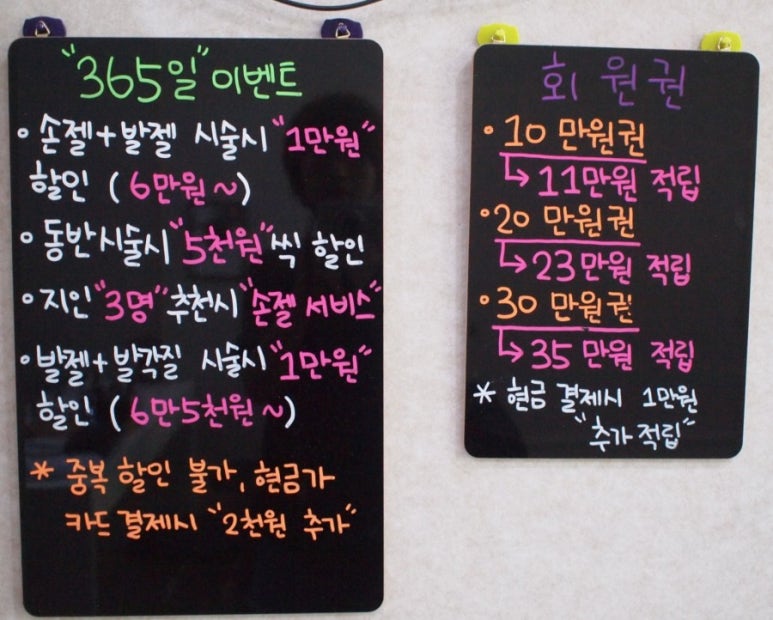 "365일" 이벤트
• 손젤+발젤 시술시 "1만원"
할인 (6만원~)
• 동반시술시 "5천원"씩 할인
• 지인 "3명" 추천시 "손젤 서비스"
• 발젤+발각질 시술시 "1만원"
할인 (6만5천원~)
* 중복 할인 불가, 현금가
카드 결제시 "2천원 추가"
회원권
• 10 만원권
↳ 11만원 적립
• 20 만원권
↳ 23만원 적립
• 30 만원권
↳ 35만원 적립
* 현금 결제시 1만원
"추가적립"